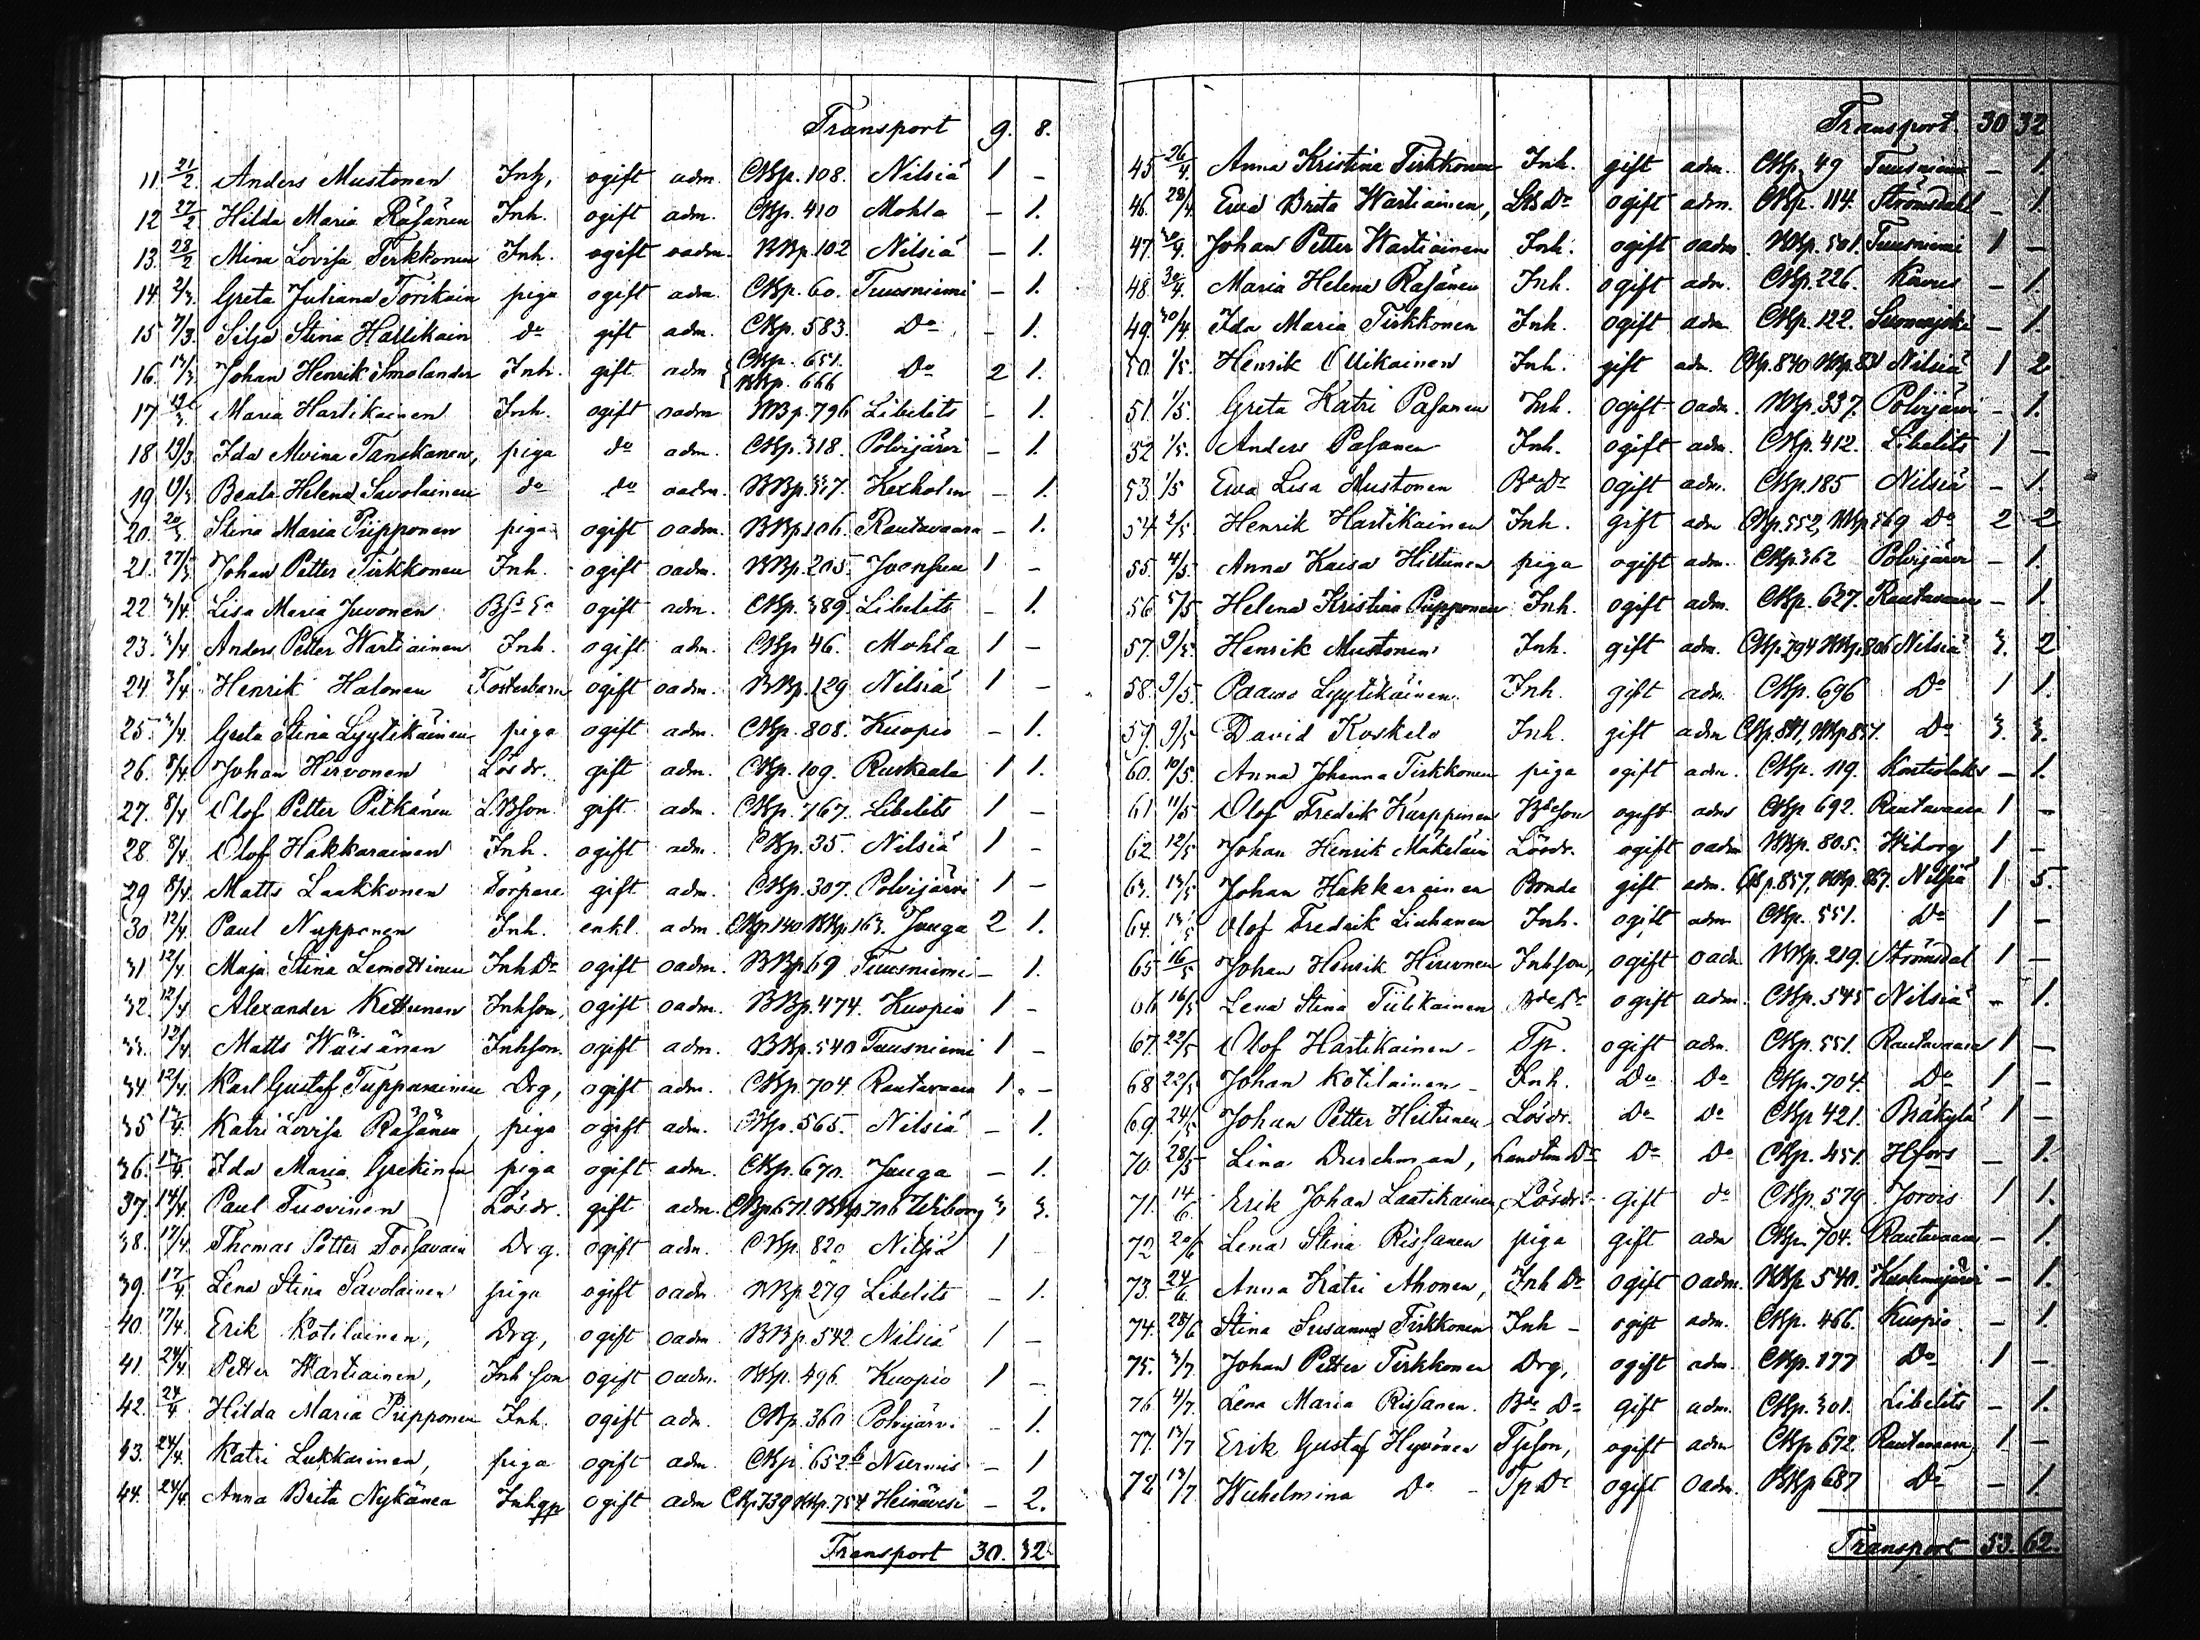 Transport 9. 8.
11. 21/2. Anders Mustonen Inh, ogift adm. CKBp. 108. Nilsiä 1 -
12 27/2 Hilda Maria Räsänen Inh. ogift adm. CKBp. 410 Mohla - 1.
13. 28/2 Mina Lovisa Tirkkonen Inh. ogift oadm. BBp. 102 Nilsiä - 1.
14. 2/3. Greta Juliana Torikain piga ogift adm. CKBp. 60. Tuusniemi - 1.
15 7/3. Silja Stina Hallikain do gift adm. CKBp. 583. Do - 1.
16. 13/3. Johan Henrik Smolander Inh. gift adm { CKBp. 651. BBp. 666 Do 2 1.
17 19/3 Maria Hartikainen Inh. ogift oadm BBp. 796 Libelits - 1.
18 19/3 Ida Alvina Tanskanen, piga do adm. CKBp. 318. Polvijärvi - 1.
19 19/3 Beata Helena Savolainen do do oadm. BBp. 337. Kexholm - 1.
20. 20/3. Stina Maria Piipponen piga ogift oadm. BBp. 106. Rautavaara - 1.
21. 27/3 Johan Petter Tirkkonen Inh. ogift oadm. BBp. 205. Joensuu 1 -
22 3/4. Lisa Maria Juvonen ogift adm. CKBp. 389. Libelits - 1.
23. 3/4. Anders Petter Wartiainen Inh. ogift adm. CKBp 46. Mohla 1 -
24 3/4. Henrik Halonen Fosterbarn ogift oadm. BBp. 129 Nilsiä 1 -
25 3/4. Greta Stina Lyytikäinen piga ogift adm. CKBp. 808. Kuopio - 1.
26. 8/4 Johan Hirvonen Lösdr. gift adm. CKBp. 109. Ruskeala 1 1.
27. 8/4 Olof Petter Pitkänen LBson gift adm. CKBp. 767. Libelits 1 -
28. 8/4 Olof Hakkarainen Inh. ogift adm. CKBp. 35. Nilsiä 1 -
29 8/4. Matts Laakkonen Torpare gift adm. CKBp. 307. Polvijärvi 1 -
30 12/4. Paul Nupponen Inh. enkl. adm. CKBp 140 BBp 163. Juuga 2 1.
31 12/4. Maja Stina Lemettinen InhDr ogift oadm. BBp 69 Tuusniemi - 1.
32. 12/4 Alexander Kettunen Inhson, ogift oadm. BBp. 474. Kuopio 1 -
33. 12/4 Matts Wäisänen Inhson. ogift adm. BBp. 540 Tuusniemi 1 -
34 12/4. Karl Gustaf Tupparainen Drg, ogift adm. CKBp 704 Rautavaara 1 -
35 13/4. Katri Lovisa Räsänen piga ogift adm. CKBp. 565. Nilsiä - 1.
36. 13/4 Ida Maria Grekinen piga ogift adm. CKBp. 670. Juuga - 1.
37. 14/4. Paul Tuovinen Lösdr. gift adm. CKBp 671. BBp 706 Wiborg 3 3.
38. 17/4 Thomas Petter Toivavain Drg. ogift adm. CKBp. 820 Nilsiä 1
39. 17/4 Lena Stina Savolainen piga ogift oadm BBp 279 Libelits - 1.
40. 17/4. Erik Kotilainen, Drg, ogift oadm BBp. 542 Nilsiä 1 -
41. 24/4 Petter Wartiainen, Inhson ogift oadm. BBp. 496. Kuopio 1 -
42. 24/4 Hilda Maria Piipponen Inh. ogift adm. CKBp. 360 Polvijärvi - 1.
43. 24/4. Katri Lukkarinen, piga ogift adm. CKBp. 652b Nurmis - 1
44. 24/4 Anna Brita Nykänen Inh ogift adm CKBp 739 BBp. 754 Heinävesi - 2.
Transport 30. 32.
Transport 30 32
45. 26/4. Anna Kristina Tirkkonen Inh. gift adm. CKBp. 49 Tuusniemi - 1.
46. 28/4. Ewa Brita Wartiainen, ogift adm. CKBp. 114. Strömsdal - 1.
47. 30/4. Johan Petter Wartiainen Inh. ogift oadm. BBp. 501. Tuusniemi 1 -
48. 30/4. Maria Helena Räsänen Inh. ogift adm. CKBp. 226. Kaavi - 1
49. 30/4 Ida Maria Tirkkonen Inh. ogift adm. CKBp. 122. Suonenjoki - 1.
50. 1/5. Henrik Ollikainen Inh. gift adm. CKBp. 830 Nilsiä 1 2
51. 1/5. Greta Katri Pasanen Inh. ogift oadm. BBp. 337. Polvijärvi - 1.
52 1/5. Anders Pasanen Inh. ogift adm. CKBp. 412. Libelits 1 -
53. 1/5 Ewa Lisa Mustonen BdeDr ogift adm. CKBp. 185 Nilsiä - 1.
54 2/5 Henrik Hartikainen Inh. gift adm CKBp. 552, BBp 569 Do 2 2
55. 4/5. Anna Kaisa Hiltunen piga ogift adm. CKBp. 362 Polvijärvi - 1.
56 5/5 Helena Kristina Piipponen Inh. ogift adm. CKBp. 627. Rautavaara - 1.
57. 9/5. Henrik Mustonen Inh. gift adm. CKBp. 794 BBp. 806 Nilsiä 3. 2
58. 9/5. Paavo Lyytikäinen Inh. gift adm. CKBp. 696 Do 1 1.
59. 9/5 David Koskelo Inh. gift adm CKBp. 841, BBp 857. Do 3. 3.
60. 10/5. Anna Johanna Tirkkonen piga ogift adm. CKBp. 119. Kontiolaks - 1.
61 11/5 Olof Fredrik Karppinen Bdeson ogift adm CKBp 692. Rautavaara 1 -
62 12/5 Johan Henrik Mäkeläin Lösdr. ogift oadm BBp. 805. Wiborg 1 -
63. 13/5 Johan Hakkarainen Bonde gift adm. CKBp. 857, BBp. 867. Nilsiä 1 5.
64. 13/5 Olof Fredrik Liuhanen Inh. ogift adm CKBp. 551. Do 1 -
65 16/5 Johan Henrik Hirvonen Inhson, ogift oadm BBp. 219. Strömsdal 1 -
66 16/5 Lena Stina Tiilikainen BdeDr ogift adm. CKBp. 545 Nilsiä - 1.
67. 22/5 Olof Hartikainen - Tp. ogift adm. CKBp. 551. Rautavaara 1 -
68 22/5 Johan Kotilainen - Inh. Do Do CKBp. 704. Do 1 -
69. 24/5 Johan Petter Hiltunen Lösdr. Do Do CKBp 421. Bräkylä 1 -
70 28/5 Lina Duschman, Do Do CKBp. 451. Hfors - 1.
71. 14/6. Erik Johan Laatikainen Lösdr. gift do CKBp. 579 Jorois 1 1.
72 20/6 Lena Stina Rissanen piga gift adm CKBp. 704. Rautavaara - 1.
73. 24/6 Anna Katri Ahonen, InhDr ogift oadm. BBp 540. Kuolemajärvi - 1.
74. 28/6 Stina Susanna Tirkkonen Inh - ogift adm. CKBp. 466. Kuopio - 1
75. 3/7 Johan Petter Tirkkonen Drg, ogift adm. CKBp. 177 Do 1 -
76 4/7. Lena Maria Rissanen. Bde Dr gift adm. CKBp. 301. Libelits - 1.
77. 13/7 Erik Gustaf Hyvönen Tpson, ogift adm CKBp 672. Rautavaara 1 -
72 13/7 Wilhelmina Do - TpDr ogift oadm. BBp 687 Do - 1.
Transport 53. 62.